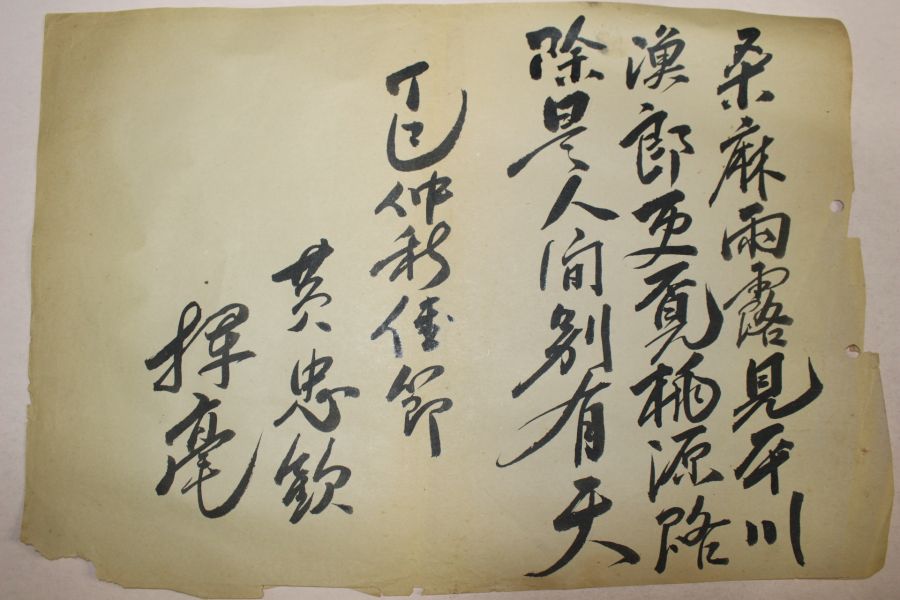 桑麻雨露見平川
漁郎更覓桃源路
除是人間別有天
丁巳仲秋佳節
黄忠欽
揮毫